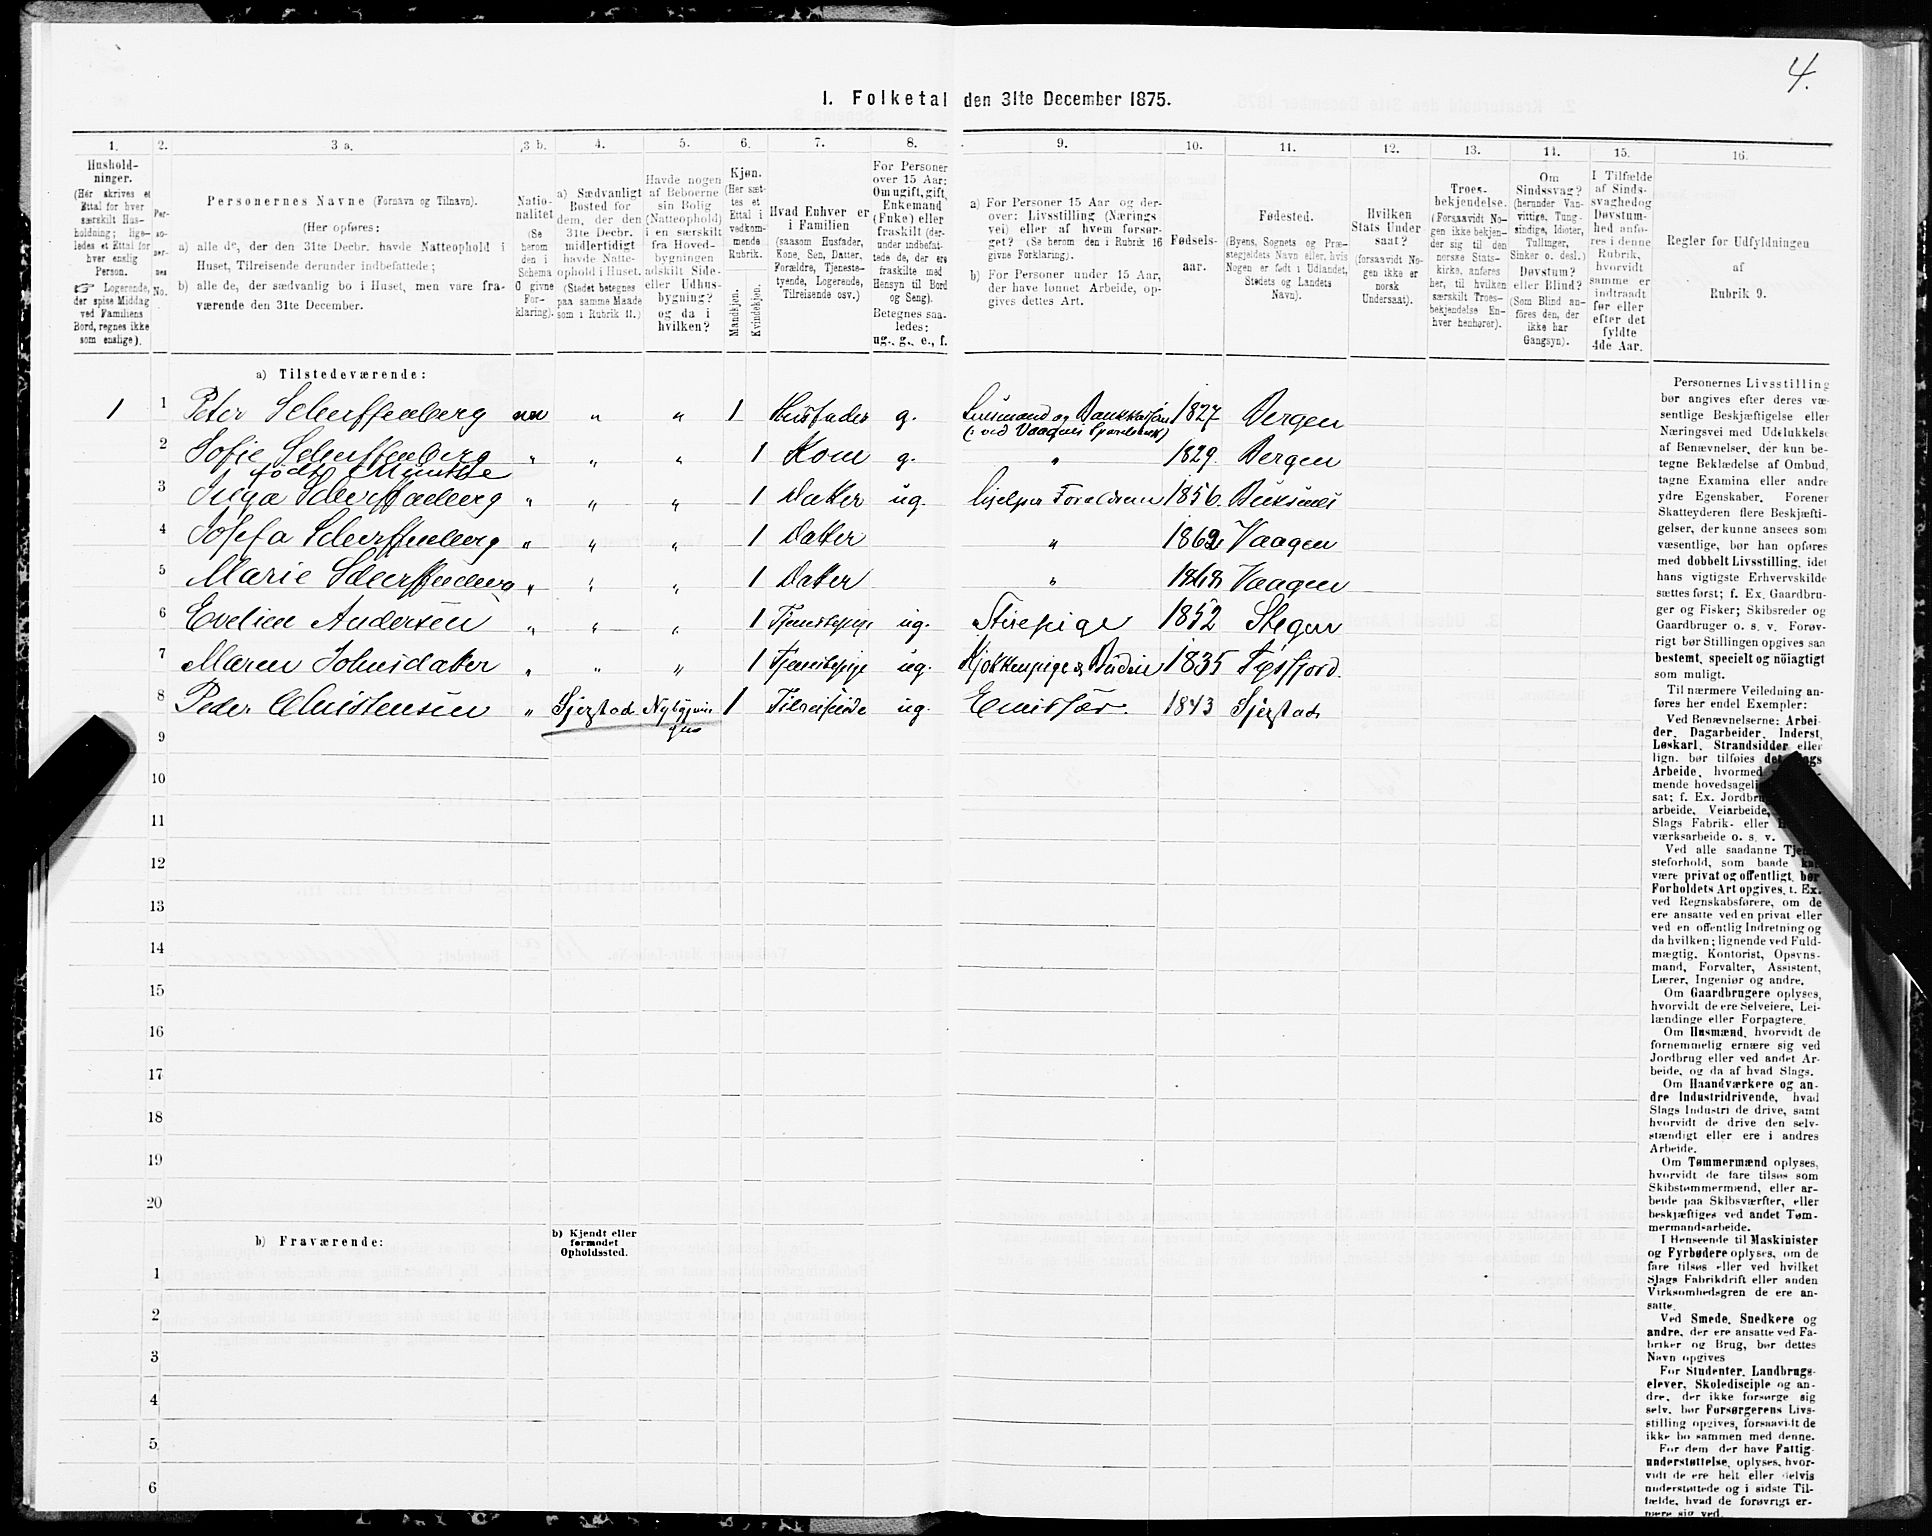 4.
1. Folketal den 31te December 1875.
1. 2. 3 a. 3 b. 4. 5. 6. 7. 8. 9. 10. 11. 12. 13. 14. 15. 16.
Hushold-
ninger.
(Her skrives et
Ettal for hver
særskilt Hus-
holdning; lige-
ledes et Ettal for
hver enslig
Person.
☞ Logerende,
der spise Middag
ved Familiens
Bord, regnes ikke
som enslige).
Per-
so-
ner-
nes
No.
Personernes Navne (Fornavn og Tilnavn).
(Her opføres:
a) alle de, der den 31te Decbr. havde Natteophold i
Huset, Tilreisende derunder indbefattede;
b) alle de, der sædvanlig bo i Huset, men vare fra-
værende den 31te December.
Natio-
nalitet
(Se
herom
den i
Schema
0 givne
For-
klaring).
a) Sædvanligt
Bosted for
dem, der den
31te Decbr.
midlertidigt
havde Natte-
ophold i Huset.
(Stedet betegnes
paa samme Maade
som i Rubrik 11.)
Havde nogen
af Beboerne
sin Bolig
(Natteophold)
i en særskilt
fra Hoved-
bygningen
adskilt Side-
eller Udhus-
bygning?
og da i
hvilken?
Kjøn.
(Her sæt-
tes et
Ettal i
vedkom-
mende
Rubrik.
Mandkjøn.
Kvindekjøn.
Hvad Enhver er
i Familien
(saasom Husfader,
Kone, Søn, Datter,
Forældre, Tjeneste-
tyende, Logerende,
Tilreisende osv.)
For Personer
over 15 Aar:
Om ugift, gift,
Enkemand
(Enke) eller
fraskilt (der-
under indbefat-
tede de, der ere
fraskilte med
Hensyn til Bord
og Seng).
Betegnes saa-
ledes:
ug., g., e., f.
a) For Personer 15 Aar og der-
over: Livsstilling (Nærings
vei) eller af hvem forsør-
get? (Se herom den i Rubrik 16
givne Forklaring).
b) For Personer under 15 Aar,
der have lønnet Arbeide, op-
gives dettes Art.
Fødsels-
aar.
Fødested.
(Byens, Sognets og Præ-
stegjeldets Navn eller, hvis
Nogen er født i Udlandet,
Stedets og Landets
Navn).
Hvilken
Stats Under
saat?
(forsaavidt No-
gen ikke er
norsk
Undersaat).
Troes-
bekjendelse.
(Forsaavidt No-
gen ikke bekjen-
der sig til den
norske Stats-
kirke, anføres
her, til hvilken
særskilt Troes-
bekjendelse En-
hver henhører).
Om
Sindssvag?
(herunder Van-
vittige, Tung-
sindige, Idioter,
Tullinger,
Sinker o. desl.)
Døvstum?
eller Blind?
(Som Blind an-
føres den, der
ikke har
Gangsyn).
I Tilfælde
af Sinds-
svaghed og
Døvstum-
hed anfø-
res i denne
Rubrik,
hvorvidt
samme er
indtraadt
før eller
efter det
fyldte
4de Aar.
Regler for Udfyldningen
af
Rubrik 9.
a) Tilstedeværende:
1 1 Peter Scherffenberg nor „ „ 1 Husfader g. Lensmand og Bankkasserer 1827 Bergen
(: ved Vaagens Sparebank)
2 Sofie Scherffenberg „ „ „ 1 Kone g. „ 1829. Bergen
født Munthe
3 Inga Scherffenberg „ „ „ 1 Datter ug. hjelper Forældrene 1856. Buksnes
4 Josefa Scherffenberg „ „ „ 1 Datter „ 1862 Vaagen
5 Marie Scherffenberg „ „ „ 1 Datter „ 1868 Vaagen
6 Eveline Andersen „ „ „ 1 Tjenstepige ug. Stuepige 1852 Stegen
7 Maren Johnsdatter „ „ „ 1 Tjenstepige ug. Kjøkkenpige & Budeie 1835 Tysfjord.
8 Peder Christensen „ 1 Tilreisende ug. Emissær. 1843
9
10
11
12
13
14
15
16
17
18
19
20
b) Fraværende:
b) Kjendt eller
formodet
Opholdssted.
1
2
3
4
5
6
Personernes Livsstilling
bør angives efter deres væ-
sentlige Beskjæftigelse eller
Næringsvei med Udelukkelse
af Benævnelser, der kun be-
tegne Beklædelse af Ombud,
tagne Examina eller andre
ydre Egenskaber. Forener
Skatteyderen flere Beskjæfti-
gelser, der kunne ansees som
væsentlige, bør han opføres
med dobbelt Livsstilling, idet
hans vigtigste Erhvervskilde
sættes først; f. Ex. Gaardbru-
ger og Fisker; Skibsreder og
Gaardbruger o. s. v. Forøv-
rigt bør Stillingen opgives saa
bestemt, specielt og nöiagtigt
som muligt.
Til nærmere Veiledning an-
føres her endel Exempler:
Ved Benævnelserne: Arbei-
der, Dagarbeider, Inderst,
Løskarl, Strandsidder eller
lign. bør tilføies
Arbeide, hvormed
mende
sat; f. Ex.
arbeide, Veiarbeide,
Slags Fabrik- eller
værksarbeide o. s. v.
Ved alle saadanne
steforhold, som baade
være privat og offentligt, bør
Forholdets Art opgives, t. Ex.
ved Regnskabsførere, om de
ere ansatte ved en privat eller
ved en offentlig Indretning og
da hvilken; lignende ved Fuld-
mægtig, Kontorist, Opsyns-
mand, Forvalter, Assistent,
Lærer, Ingeniør og andre.
Om Gaardbrugere oplyses,
hvorvidt de ere Selveiere, Lei-
lændinge eller Forpagtere.
Om Husmænd, hvorvidt de
fornemmelig ernære sig ved
Jordbrug eller ved andet Ar-
beide, og da af hvad Slags.
Om Haandværkere og an-
dre Industridrivende, hvad
Slags Industri de drive, samt
hvorvidt de drive den selv-
stændigt eller ere i andres
Arbeide.
Om Tømmermænd oplyses,
hvorvidt de fare tilsøs som
Skibstømmermænd, eller ar-
beide paa Skibsværfter, eller
beskjæftiges ved andet Tøm-
mermandsarbeide.
I Henseende til Maskinister
og Fyrbødere oplyses, om de
fare tilsøs eller ved hvilket
Slags Fabrikdrift eller anden
Virksomhedsgren de ere an-
satte.
Ved Smede, Snedkere og
andre, der ere ansatte ved Fa-
briker og Brug, bør dettes
Navn opgives
For Studenter, Landbrugs-
elever, Skoledisciple og an-
dre, der ikke forsørge sig
selv, bør Forsørgerens Livs-
stilling opgives, forsaavidt de
ikke bo sammen med denne.
For dem der have Fattig-
understøttelse, oplyses, hvor-
vidt de ere helt eller delvis
understøttede og i sidste Til-
fælde, hvad de forøvrigt er-
nære sig ved.